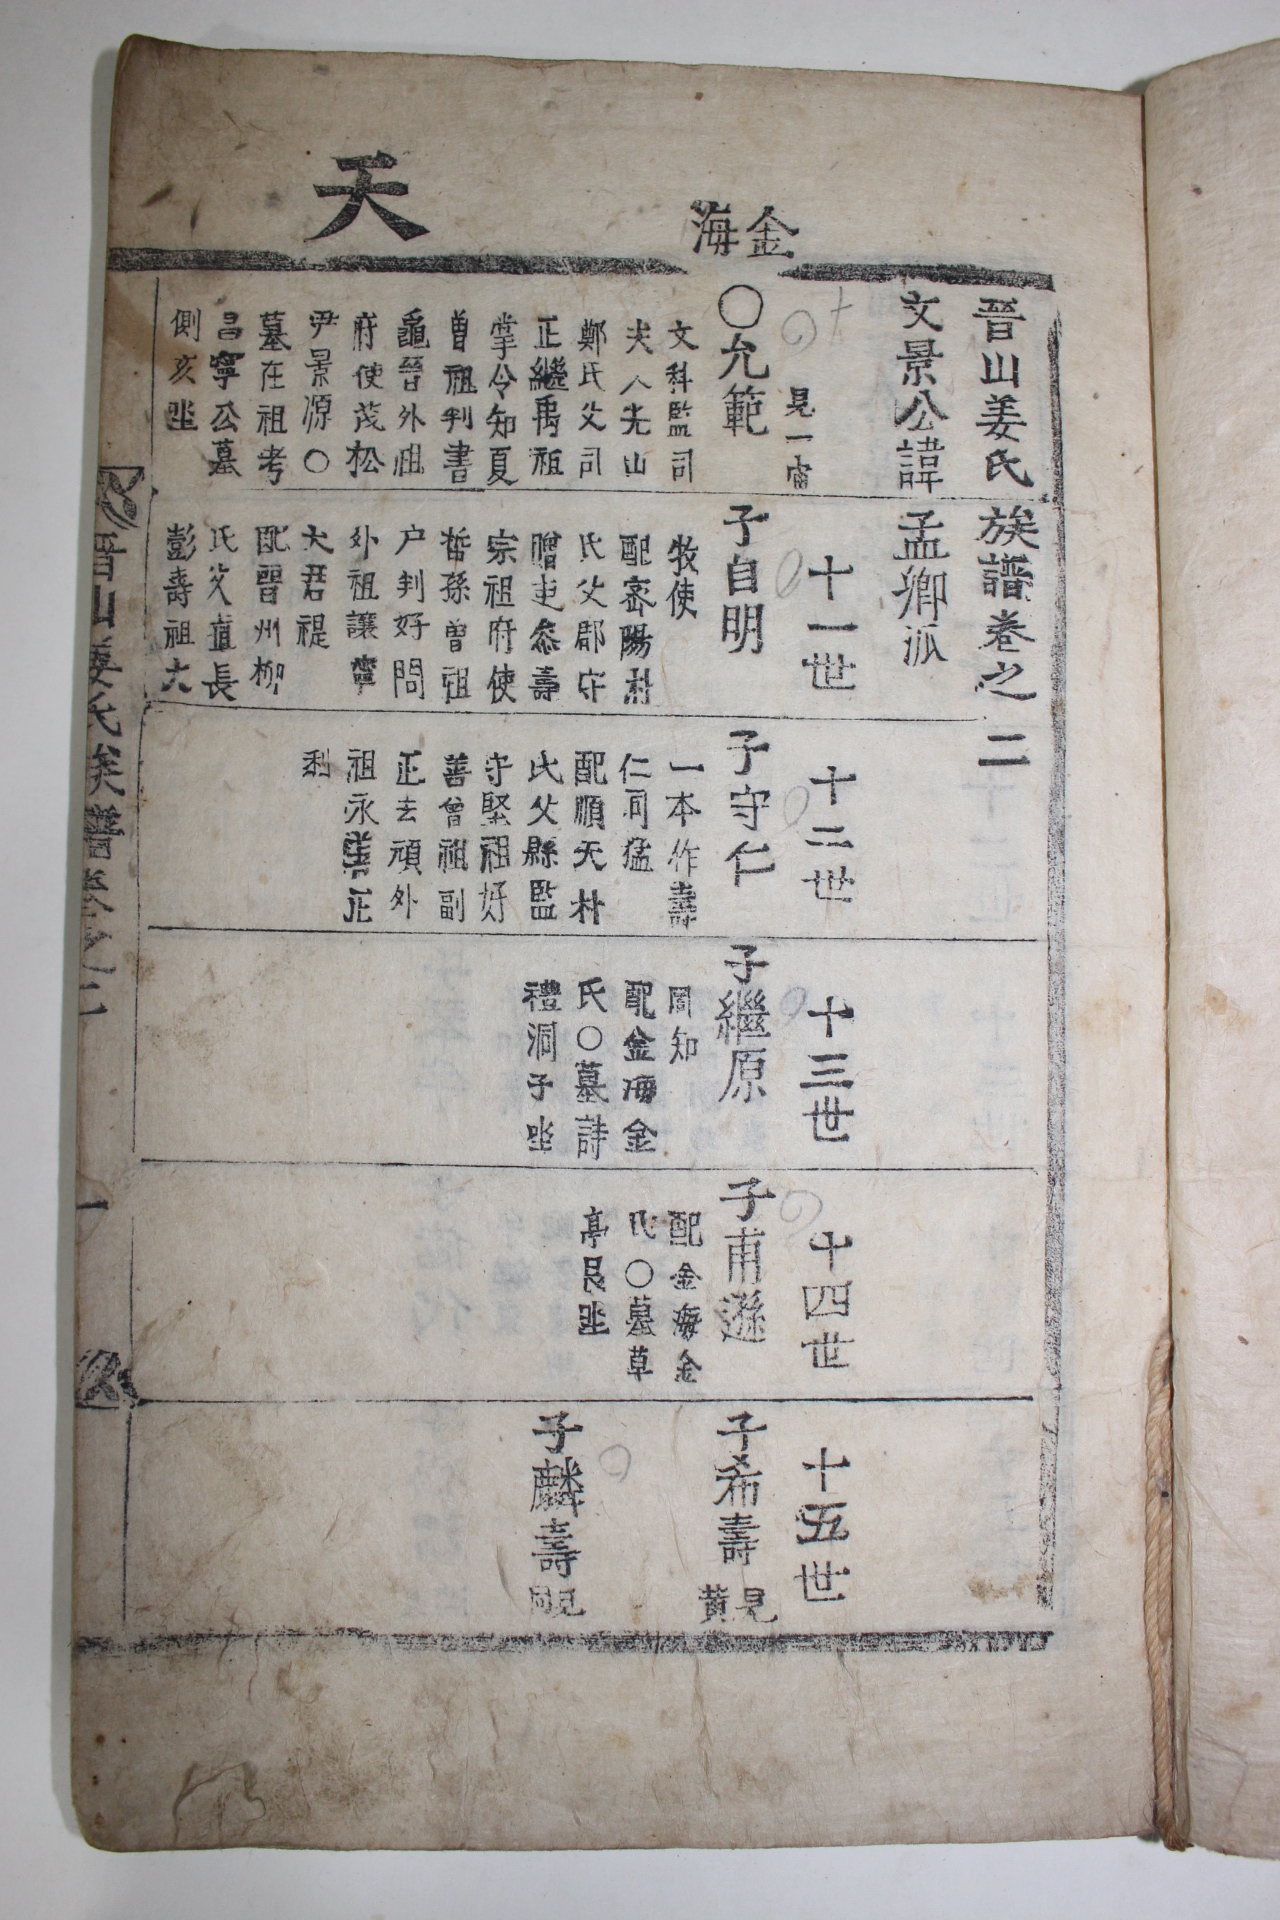 天
金海
晋山姜氏族譜卷之二
文景公諱孟卿派
十一世
十二世
十三世
十四世
十五世
見一宙
〇允範
文科監司
夫人光山
鄭氏父司
正繼禹祖
掌令知夏
曽祖判書
龜晉外祖
府使茂松
尹景源〇
墓在祖考
昌寧公墓
側亥坐
子自明
牧使
配密陽朴
氏父郡守
贈吏叅壽
宗祖府使
哲孫曽祖
户判好問
外祖讓寧
大君禔
配晋州柳
氏父直長
彭壽祖大
子守仁
一本作壽
仁同猛
配順天朴
氏父縣監
守堅祖好
善曽祖副
正去頑外
祖永
正
利
子繼原
同知
配金海金
氏〇墓詩
禮洞子坐
子甫遜
配金海金
氏〇墓草
亭艮坐
子希壽
見黄
子麟壽
見
晋山姜氏族譜卷之二
一